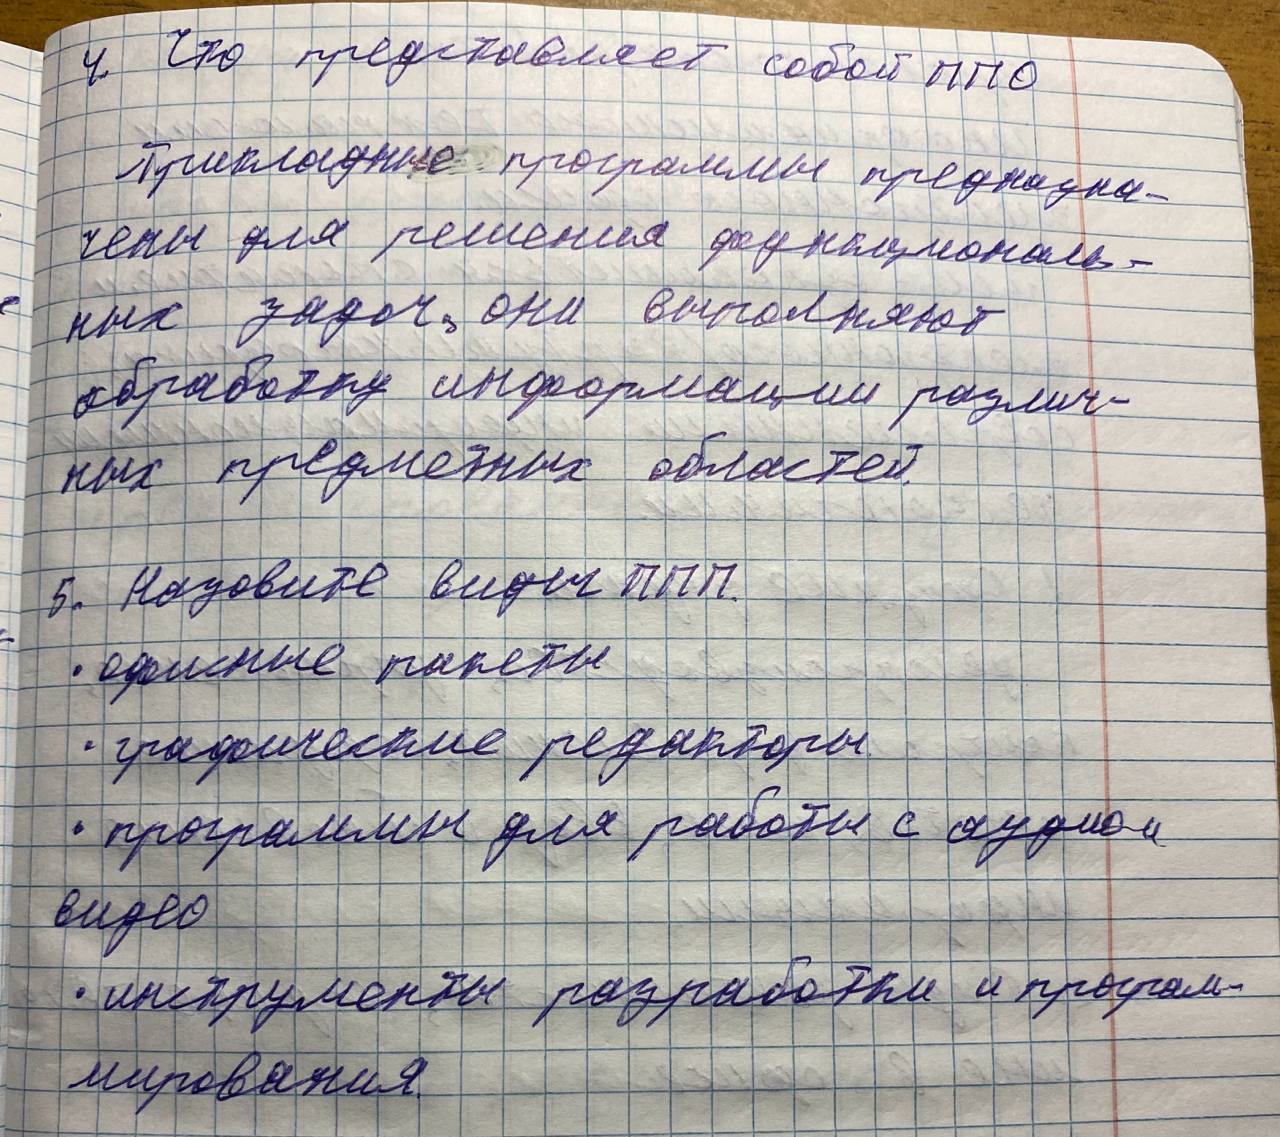 4. Что представляет собой ППО
Прикладные программы предназна-
чены для решения функциональ-
ных задач, они выполняют
обработку информации различ-
ных предметных областей.
5. Назовите виды ППП.
• офисные пакеты
• графические редакторы
• программы для работы с аудио и
видео
• инструменты разработки и програм-
мирования.